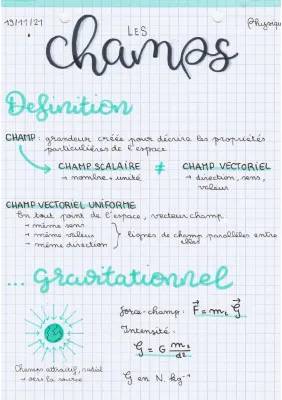 19/11/21
LES
Physique
champs
Definition
CHAMP : grandeur créée pour décrire les propriétés
particulières de l'espace
CHAMP SCALAIRE ≠ CHAMP VECTORIEL
→ nombre + unité → direction, sens,
valeurs
CHAMP VECTORIEL UNIFORME
En tout point de l'espace, vecteur champ
→ même sens
→ même valeurs } lignes de champ parallèles entre
→ même direction elles
... gravitationnel
force-champ : F⃗ = m₂ G⃗
Intensité :
G = G m₁/d²
Champs attractif, radial
→ vers la source
G en N.kg⁻¹